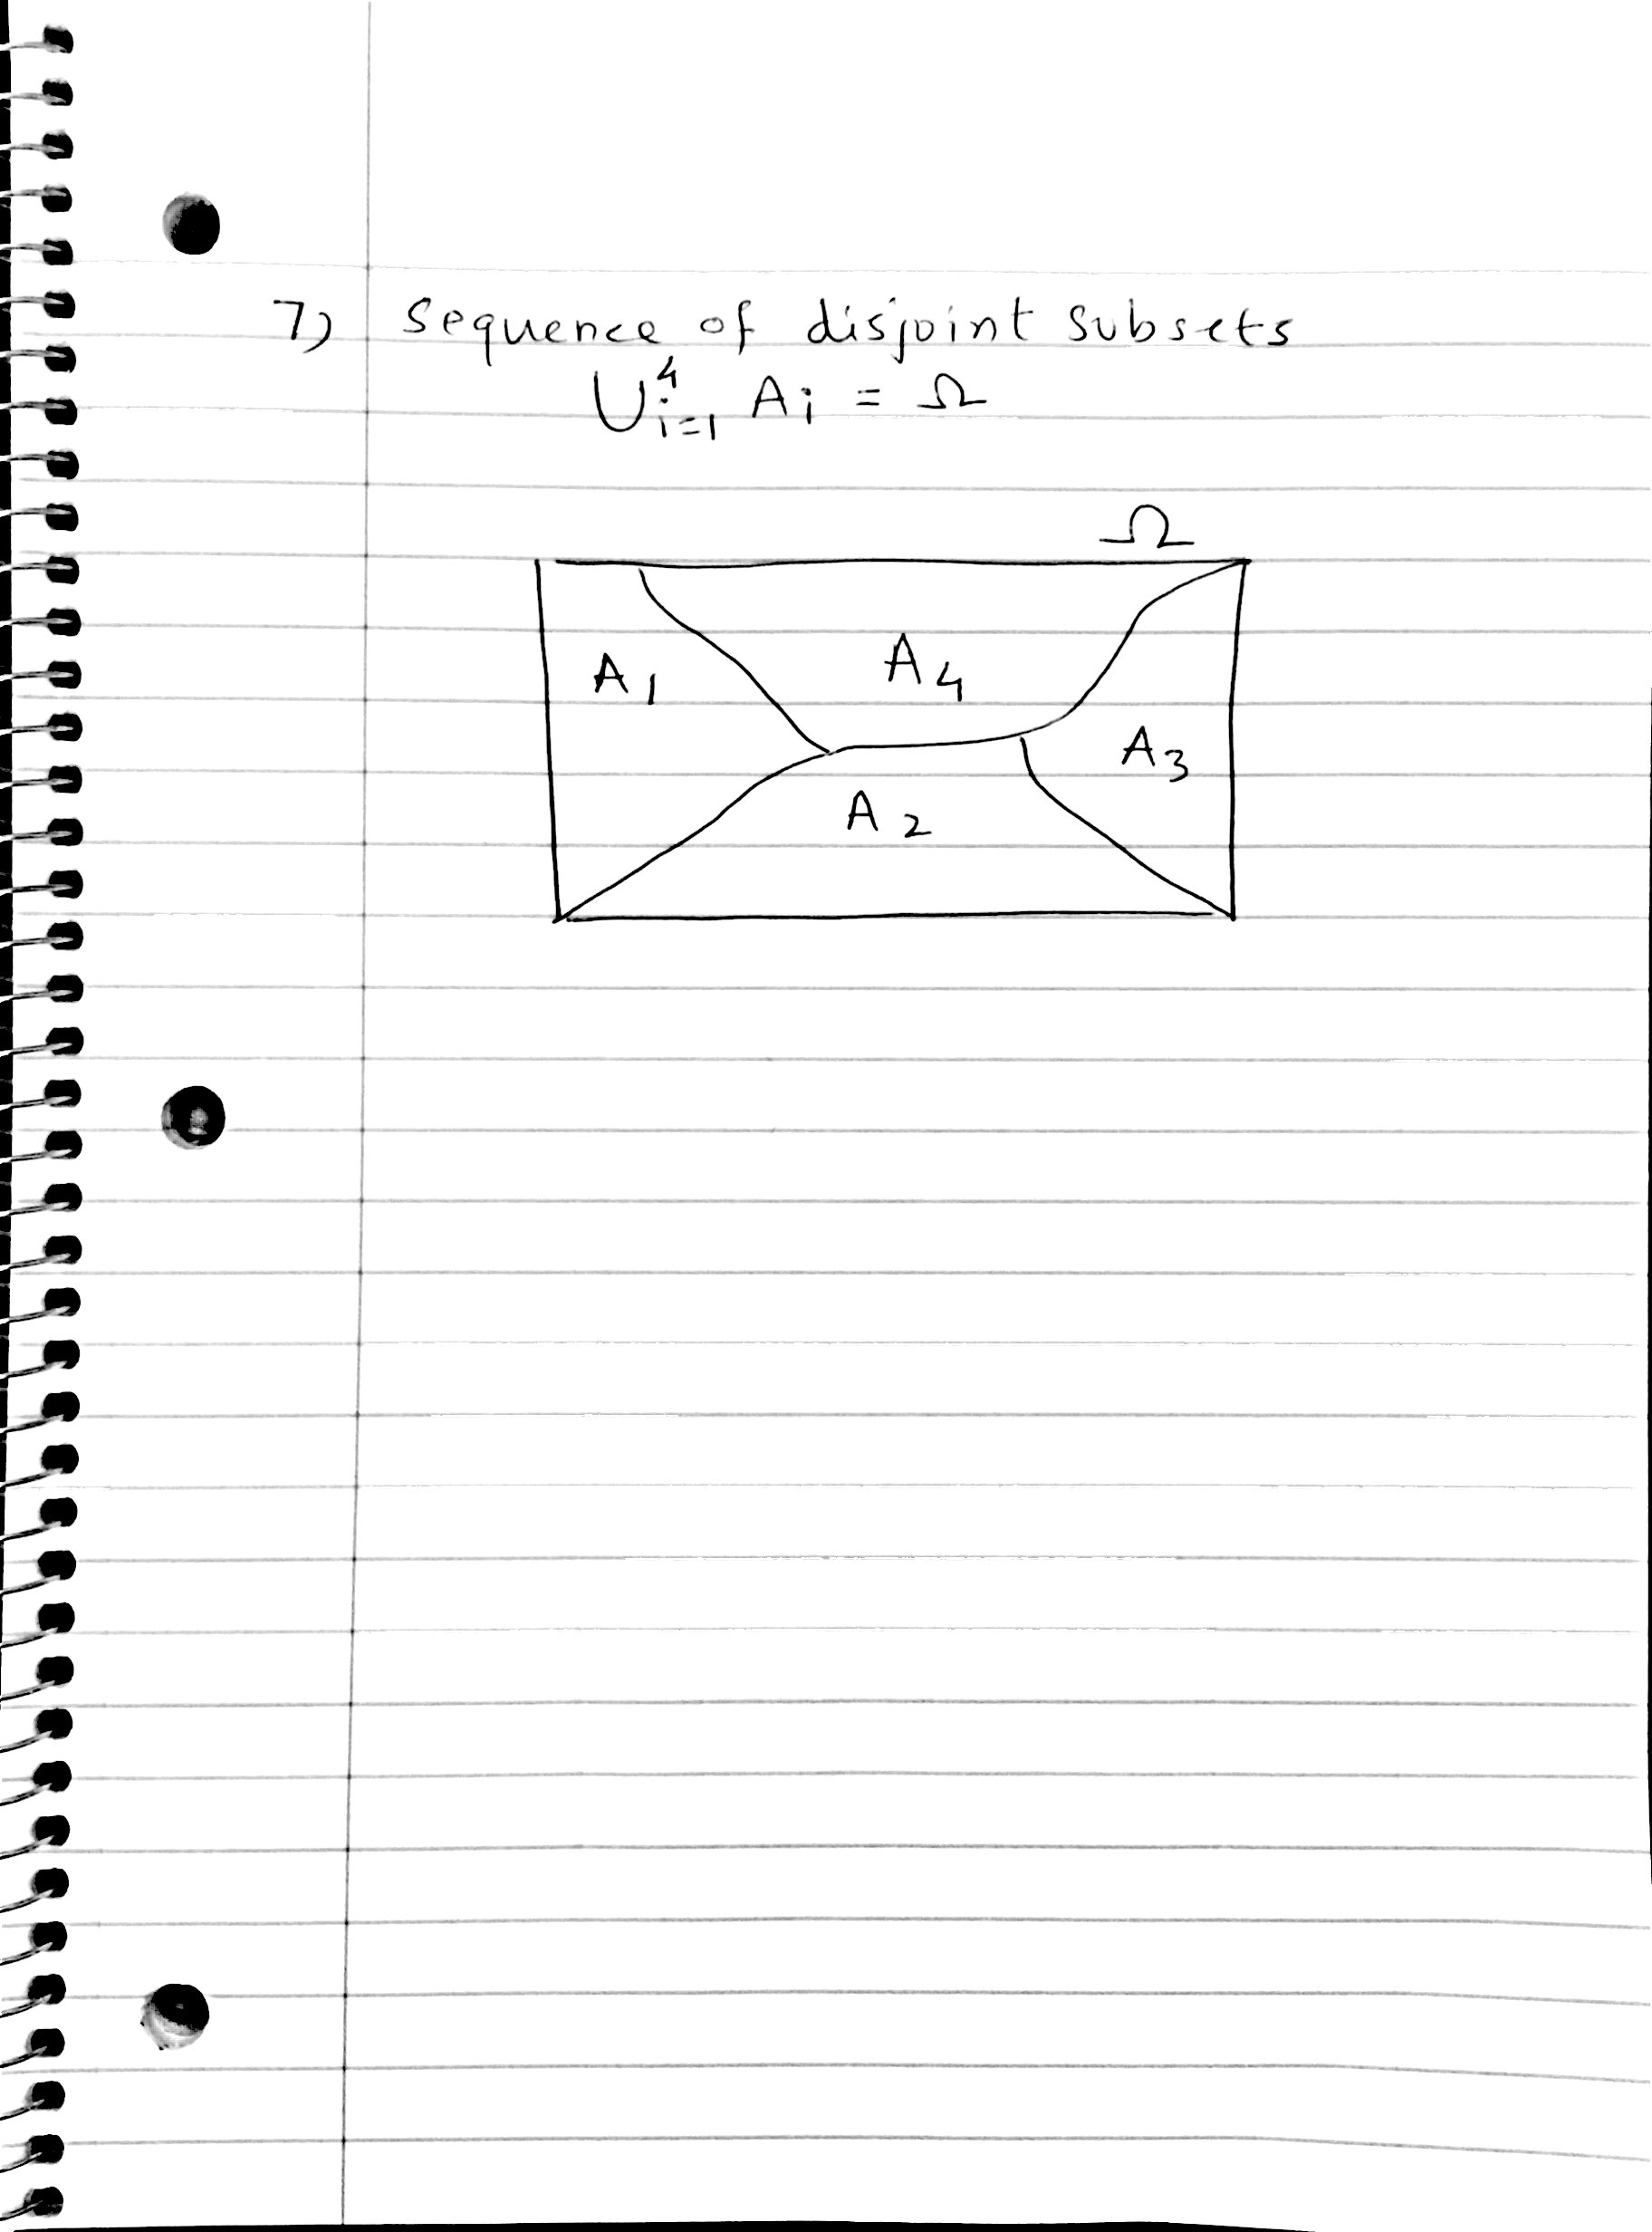 7) Sequence of disjoint subsets
∪⁴ᵢ₌₁ Aᵢ = Ω
Ω
A₁
A₄
A₃
A₂